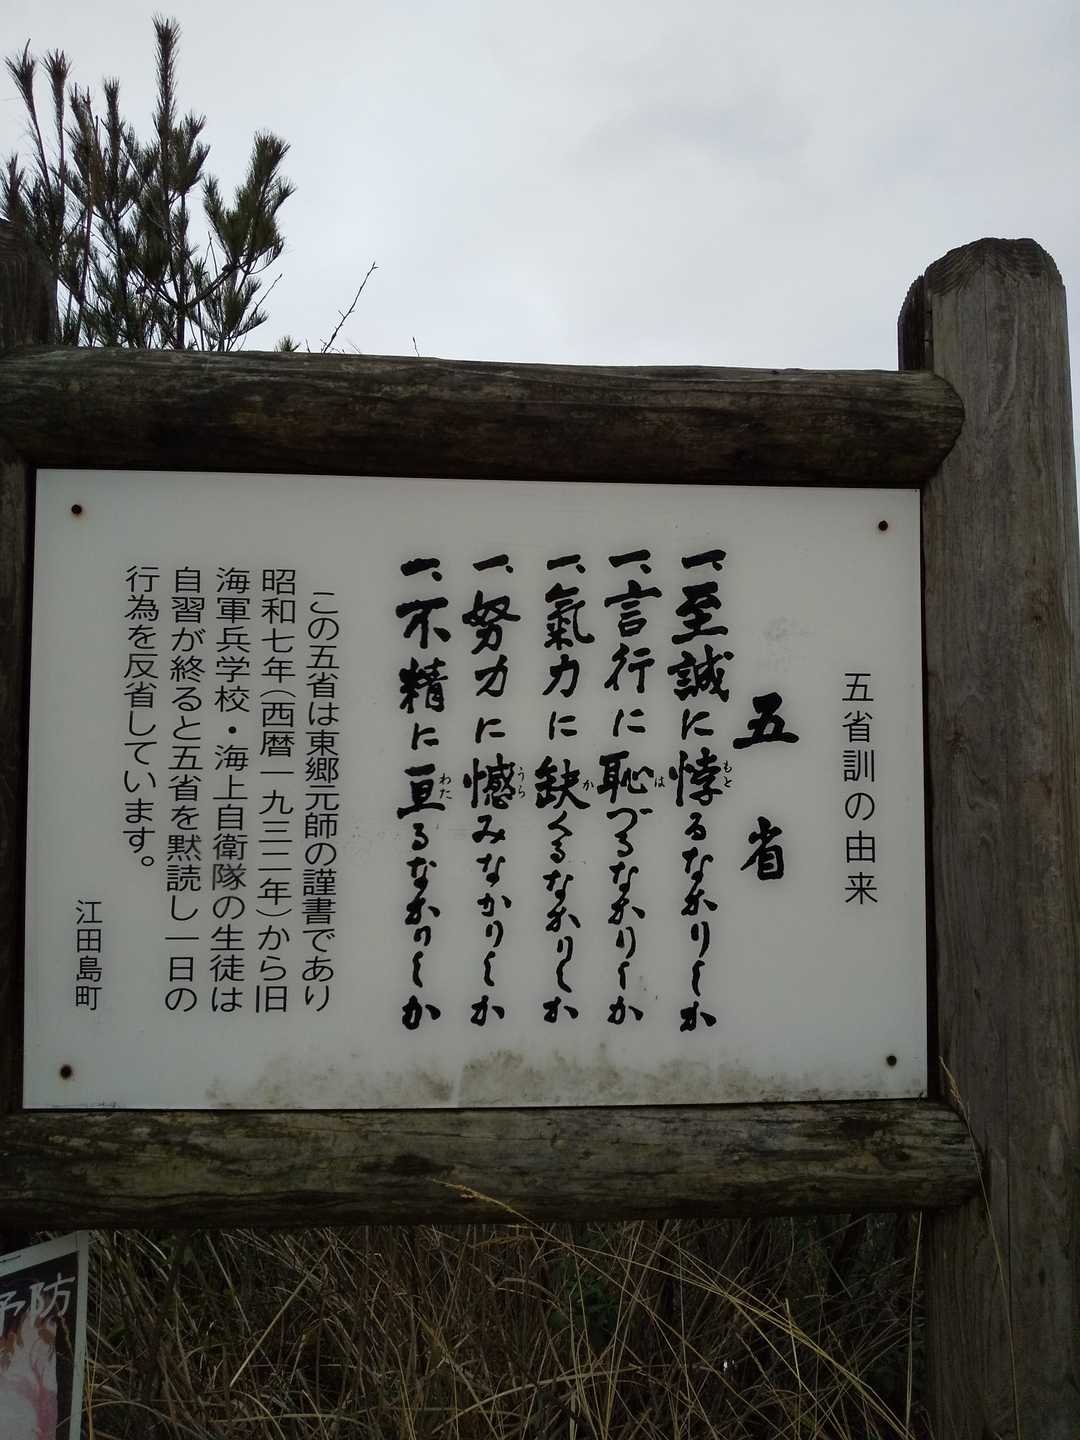 五省訓の由来
五省
一、至誠に悖るなかりしか
もと
一、言行に恥づるなかりしか
は
一、氣力に缺くるなかりしか
か
一、努力に憾みなかりしか
うら
一、不精に亘るなかりしか
わた
この五省は東郷元師の謹書であり
昭和七年(西暦一九三二年)から旧
海軍兵学校・海上自衛隊の生徒は
自習が終ると五省を黙読し一日の
行為を反省しています。
江田島町
予防